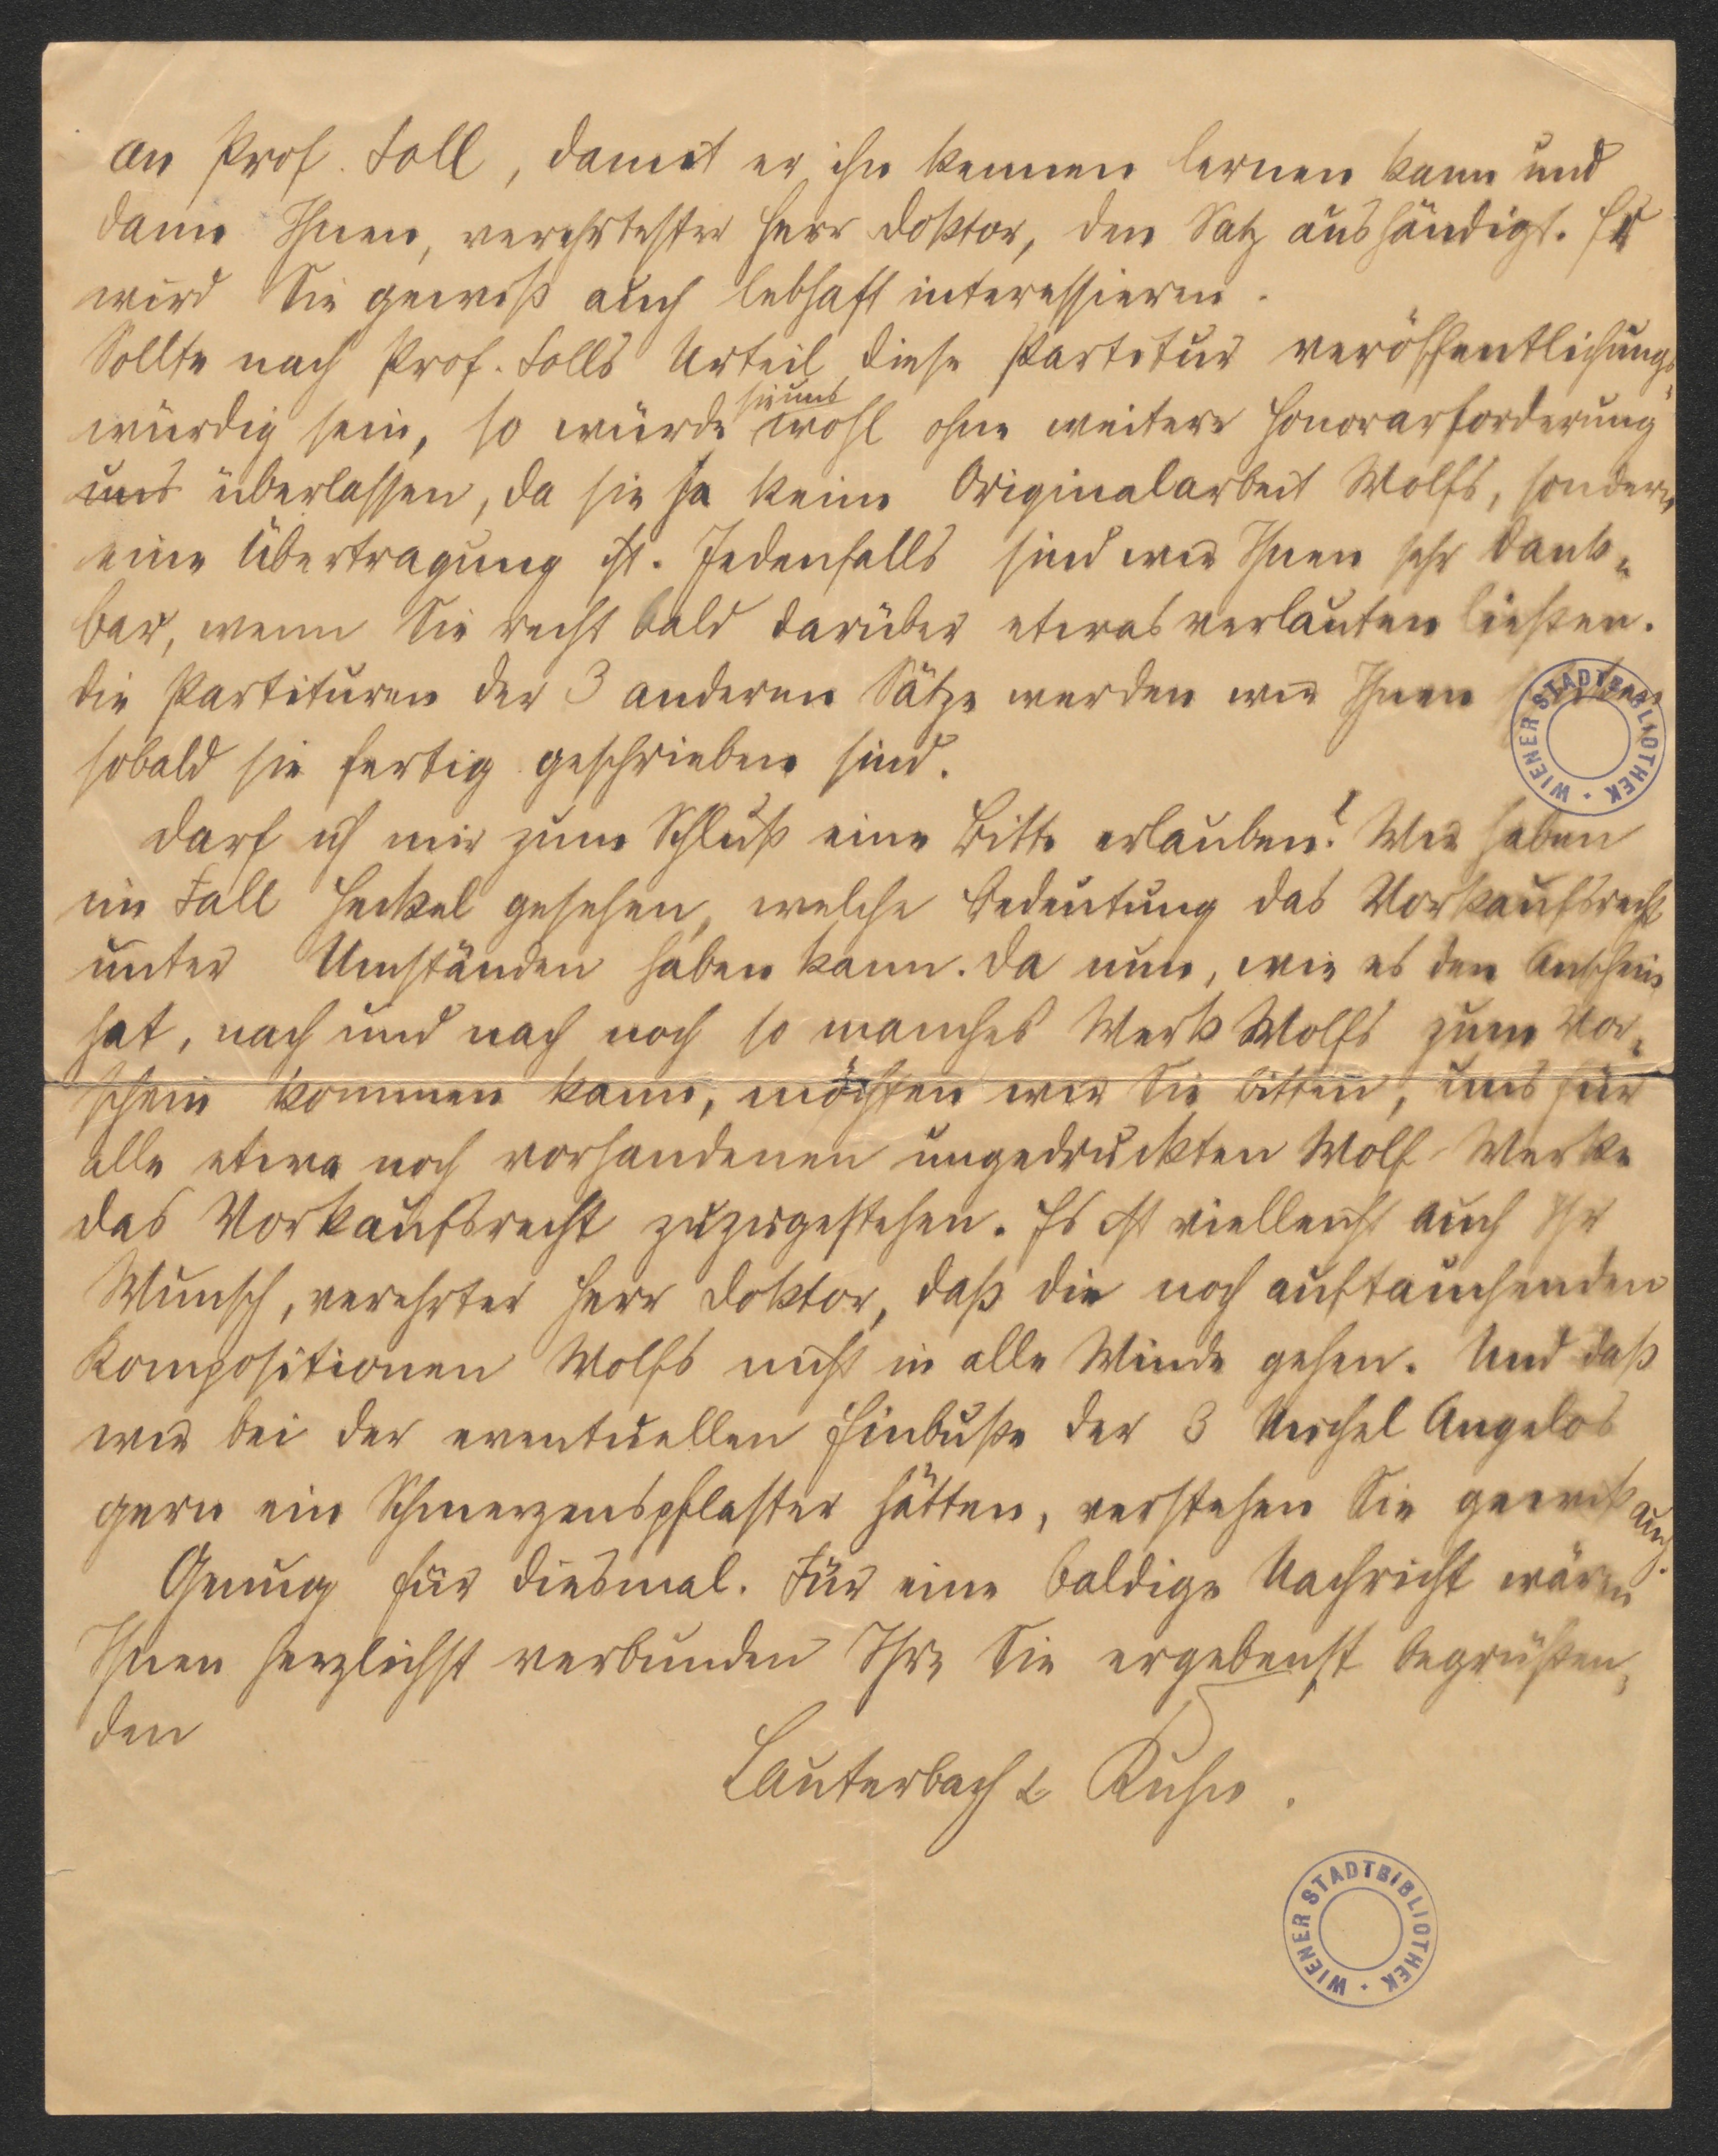 an Prof. Foll, damit er ihn kennen lernen kann und
dann Ihnen, verehrtester Herr Doktor, den Satz aushändigt. Er
wird Sie gewiß auch lebhaft interessieren.
Sollte nach Prof. Folls Urteil diese Partitur veröffentlichungs-
würdig sein, so würde sie uns wohl ohne weitere Honorarforderung
uns überlassen, da sie ja keine Originalarbeit Wolfs, sondern
eine Übertragung ist. Jedenfalls sind wir Ihnen sehr dank-
bar, wenn Sie recht bald darüber etwas verlauten ließen.
Die Partituren der 3 anderen Sätze werden wir Ihnen
sobald sie fertig geschrieben sind.
Darf ich mir zum Schluß eine Bitte erlauben? Wir haben
im Fall Heckel gesehen, welche Bedeutung das Vorkaufsrecht
unter Umständen haben kann. Da nun, wie es den Anschein
hat, nach und nach noch so manches Werk Wolfs zum Vor-
schein kommen kann, möchten wir Sie bitten, uns für
alle etwa noch vorhandenen ungedruckten Wolf-Werke
das Vorkaufsrecht zuzugestehen. Es ist vielleicht auch Ihr
Wunsch, verehrter Herr Doktor, daß die noch auftauchenden
Kompositionen Wolfs nicht in alle Winde gehen. Und daß
wir bei der eventuellen Einbuße der 3 Michel Angelos
gern ein Schmerzenspflaster hätten, verstehen Sie gewiß auch.
Genug für diesmal. Für eine baldige Nachricht wären
Ihnen herzlichst verbunden Ihre Sie ergebenst begrüßen-
den
Lauterbach & Kuhn.
WIENER STADTBIBLIOTHEK
WIENER STADTBIBLIOTHEK